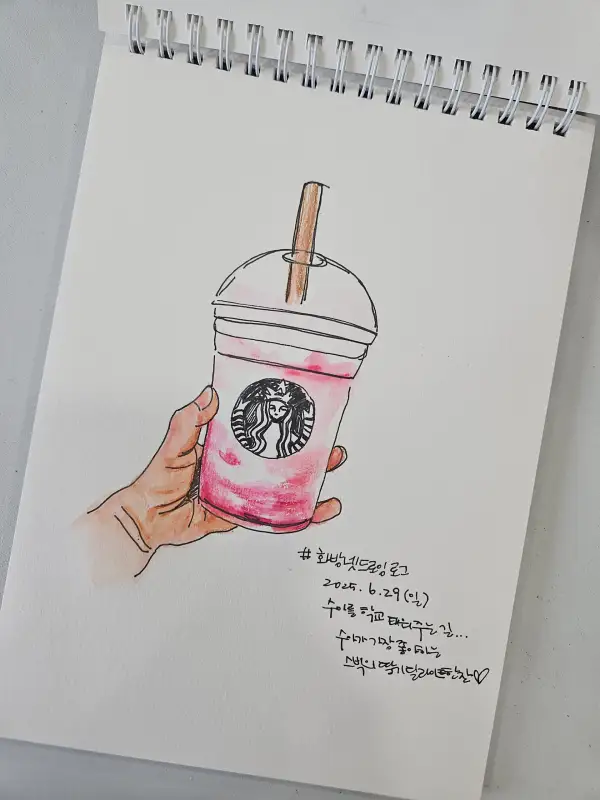 # 화방넷드로잉로그
2025. 6. 29 (일)
수아를 학교 태워주는 길...
수아가 가장 좋아하는
스벅의 딸기딜라이트한잔♡